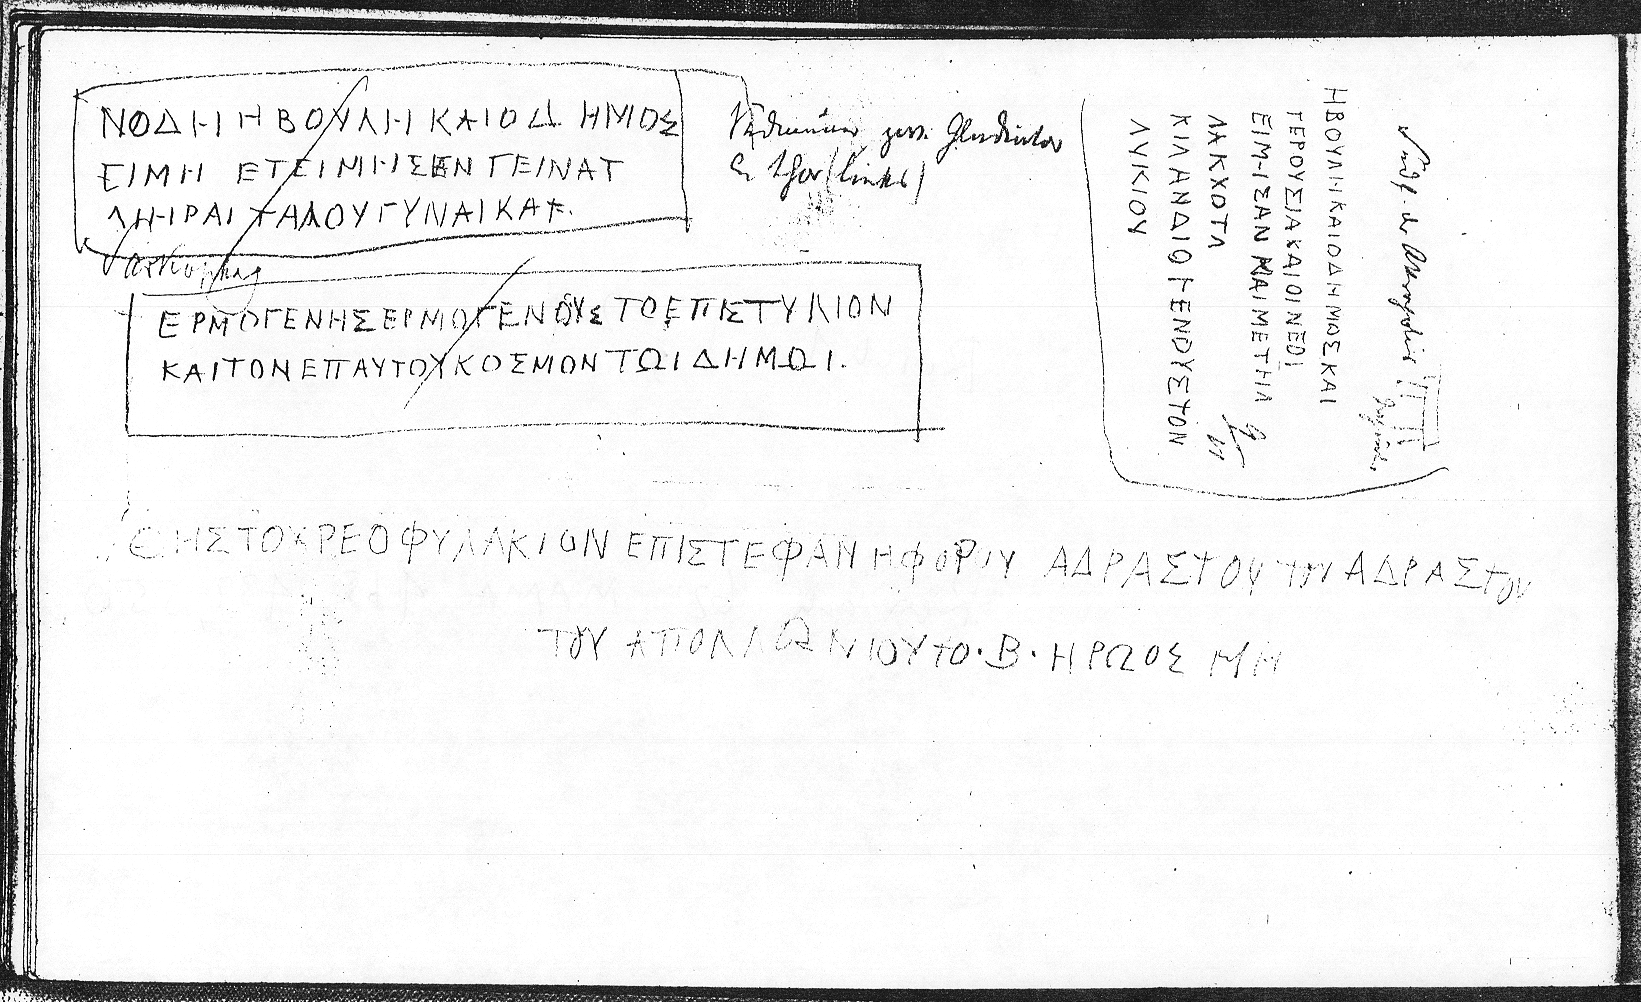 ΝΟΔΗΙ Η ΒΟΥΛΗ ΚΑΙ Ο Δ ΗΜΟΣ
ΕΙΜΗ ΕΤΕΙΜΗΣΕΝ ΓΕΙΝΑΤ
ΛΗΙΡΑΙ ΤΑΛΟΥ ΓΥΝΑΙΚΑ
ΕΡΜΟΓΕΝΗΣΕΡΜΟΓΕΝΟΥΣΤΟΕΠΙΣΤΥΛΙΟΝ
ΚΑΙΤΟΝΕΠΑΥΤΟΥΚΟΣΜΟΝΤΩΙΔΗΜΩΙ.
ΗΒΟΥΛΗΚΑΙΟΔΗΜΟΣΚΑΙ
ΓΕΡΟΥΣΙΑΚΑΙΟΙΝΕΟΙ
ΕΙΜΗΣΑΝΚΑΙΜΕΤΗΛ
ΛΑΚΧΟΤΛ
ΚΙΛΑΝΔΙΟΓΕΝΟΥΣΤΟΝ
ΛΥΚΙΟΥ
ΗΣΤΟΧΡΕΟΦΥΛΑΚΙΟΝ ΕΠΙΣΤΕΦΑΝΗΦΟΡΟΥ ΑΔΡΑΣΤΟΥ ΤΟΥ ΑΔΡΑΣΤΟΥ
ΤΟΥ ΑΠΟΛΛΩΝΙΟΥΤΟ·Β·ΗΡΩΟΣ ΜΗ